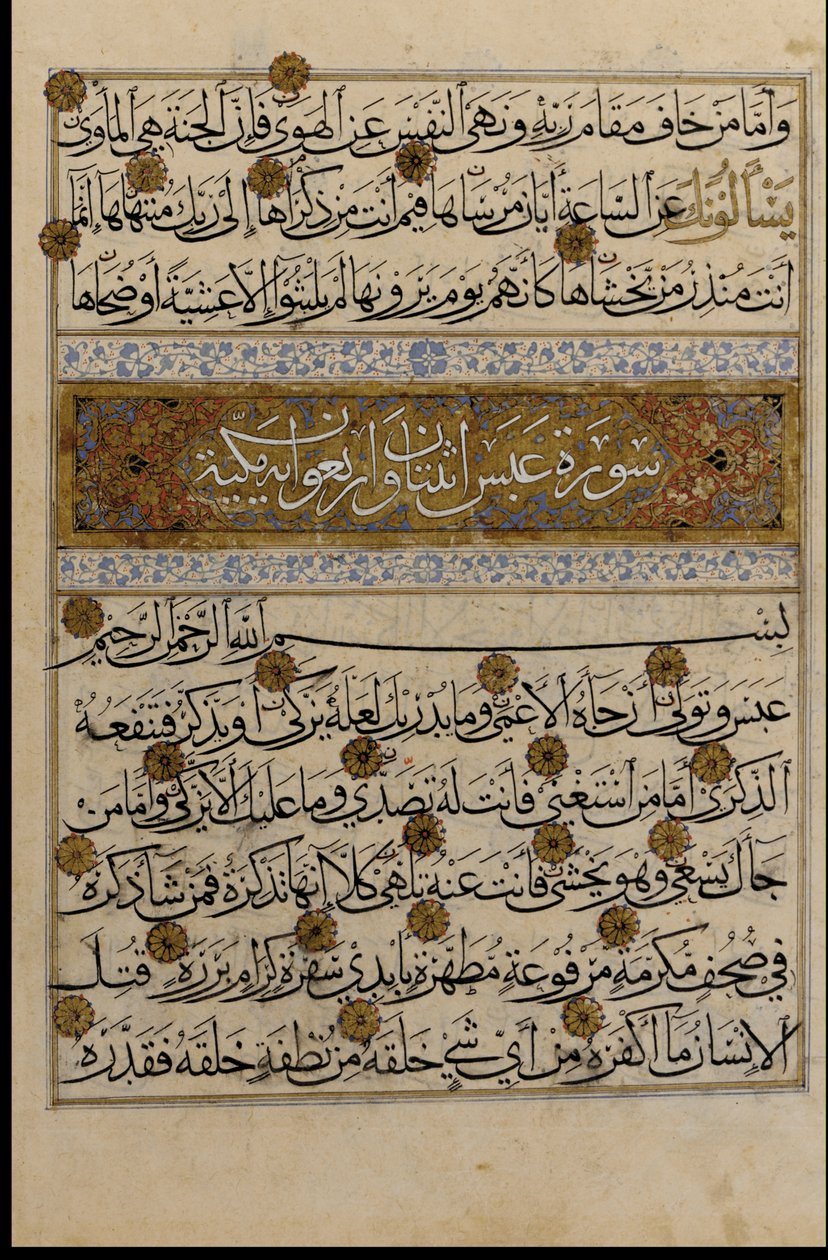 وَأَمَّا مَنْ خَافَ مَقَامَ رَبِّهِ وَنَهَى ٱلنَّفْسَ عَنِ ٱلْهَوَىٰ فَإِنَّ ٱلْجَنَّةَ هِيَ ٱلْمَأْوَىٰ
يَسْأَلُونَكَ عَنِ ٱلسَّاعَةِ أَيَّانَ مُرْسَاهَا فِيمَ أَنْتَ مِنْ ذِكْرَاهَا إِلَىٰ رَبِّكَ مُنْتَهَاهَا إِنَّمَا
أَنْتَ مُنْذِرُ مَنْ يَخْشَاهَا كَأَنَّهُمْ يَوْمَ يَرَوْنَهَا لَمْ يَلْبَثُوٓا إِلَّا عَشِيَّةً أَوْ ضُحَاهَا
سورة عبس اثنتان واربعون اية مكية
بِسْمِ ٱللَّهِ ٱلرَّحْمٰنِ ٱلرَّحِيمِ
عَبَسَ وَتَوَلَّىٰ أَنْ جَآءَهُ ٱلْأَعْمَىٰ وَمَا يُدْرِيكَ لَعَلَّهُ يَزَّكَّىٰ أَوْ يَذَّكَّرُ فَتَنْفَعَهُ
ٱلذِّكْرَىٰ أَمَّا مَنِ ٱسْتَغْنَىٰ فَأَنْتَ لَهُ تَصَدَّىٰ وَمَا عَلَيْكَ أَلَّا يَزَّكَّىٰ وَأَمَّا مَنْ
جَآءَكَ يَسْعَىٰ وَهُوَ يَخْشَىٰ فَأَنْتَ عَنْهُ تَلَهَّىٰ كَلَّآ إِنَّهَا تَذْكِرَةٌ فَمَنْ شَآءَ ذَكَرَهُ
فِي صُحُفٍ مُكَرَّمَةٍ مَرْفُوعَةٍ مُطَهَّرَةٍ بِأَيْدِي سَفَرَةٍ كِرَامٍ بَرَرَةٍ قُتِلَ
ٱلْإِنْسَانُ مَآ أَكْفَرَهُ مِنْ أَيِّ شَيْءٍ خَلَقَهُ مِنْ نُطْفَةٍ خَلَقَهُ فَقَدَّرَهُ